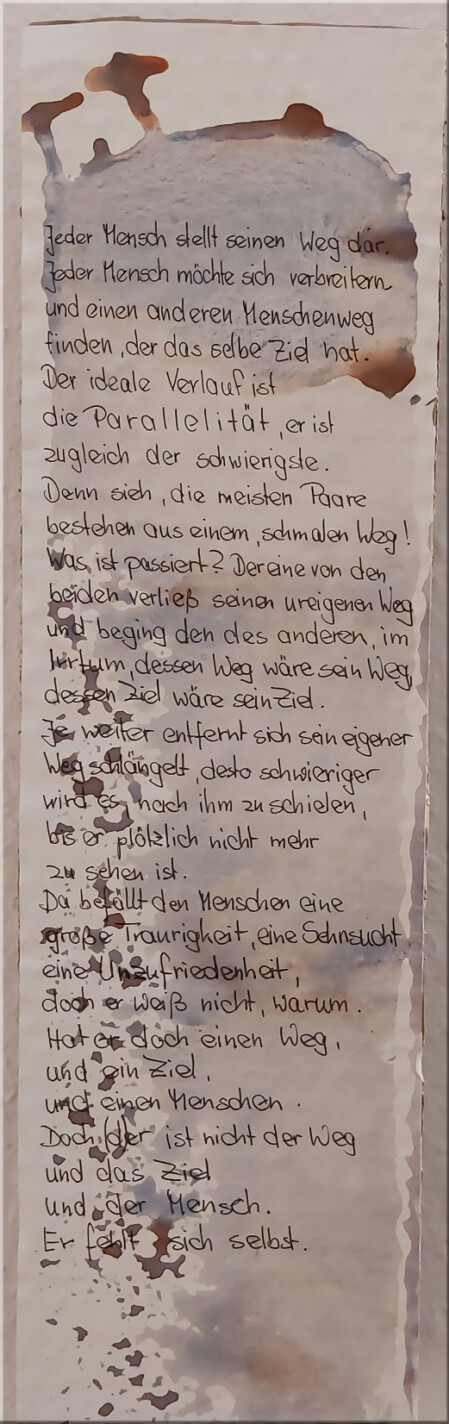 Jeder Mensch stellt seinen Weg dar.
Jeder Mensch möchte sich verbreitern
und einen anderen Menschenweg
finden, der das selbe Ziel hat.
Der ideale Verlauf ist
die Parallelität, er ist
zugleich der schwierigste.
Denn sieh, die meisten Paare
bestehen aus einem, schmalen Weg!
Was ist passiert? Der eine von den
beiden verließ seinen ureigenen Weg
und beging den des anderen, im
Irrtum, dessen Weg wäre sein Weg,
dessen Ziel wäre sein Ziel.
Je weiter entfernt sich sein eigener
Weg schlängelt, desto schwieriger
wird es, nach ihm zu schielen,
bis er plötzlich nicht mehr
zu sehen ist.
Da befällt den Menschen eine
große Traurigkeit, eine Sehnsucht
eine Unzufriedenheit,
doch er weiß nicht, warum.
Hat er doch einen Weg,
und ein Ziel,
und einen Menschen.
Doch (d)er ist nicht der Weg
und das Ziel
und der Mensch.
Er fehlt sich selbst.